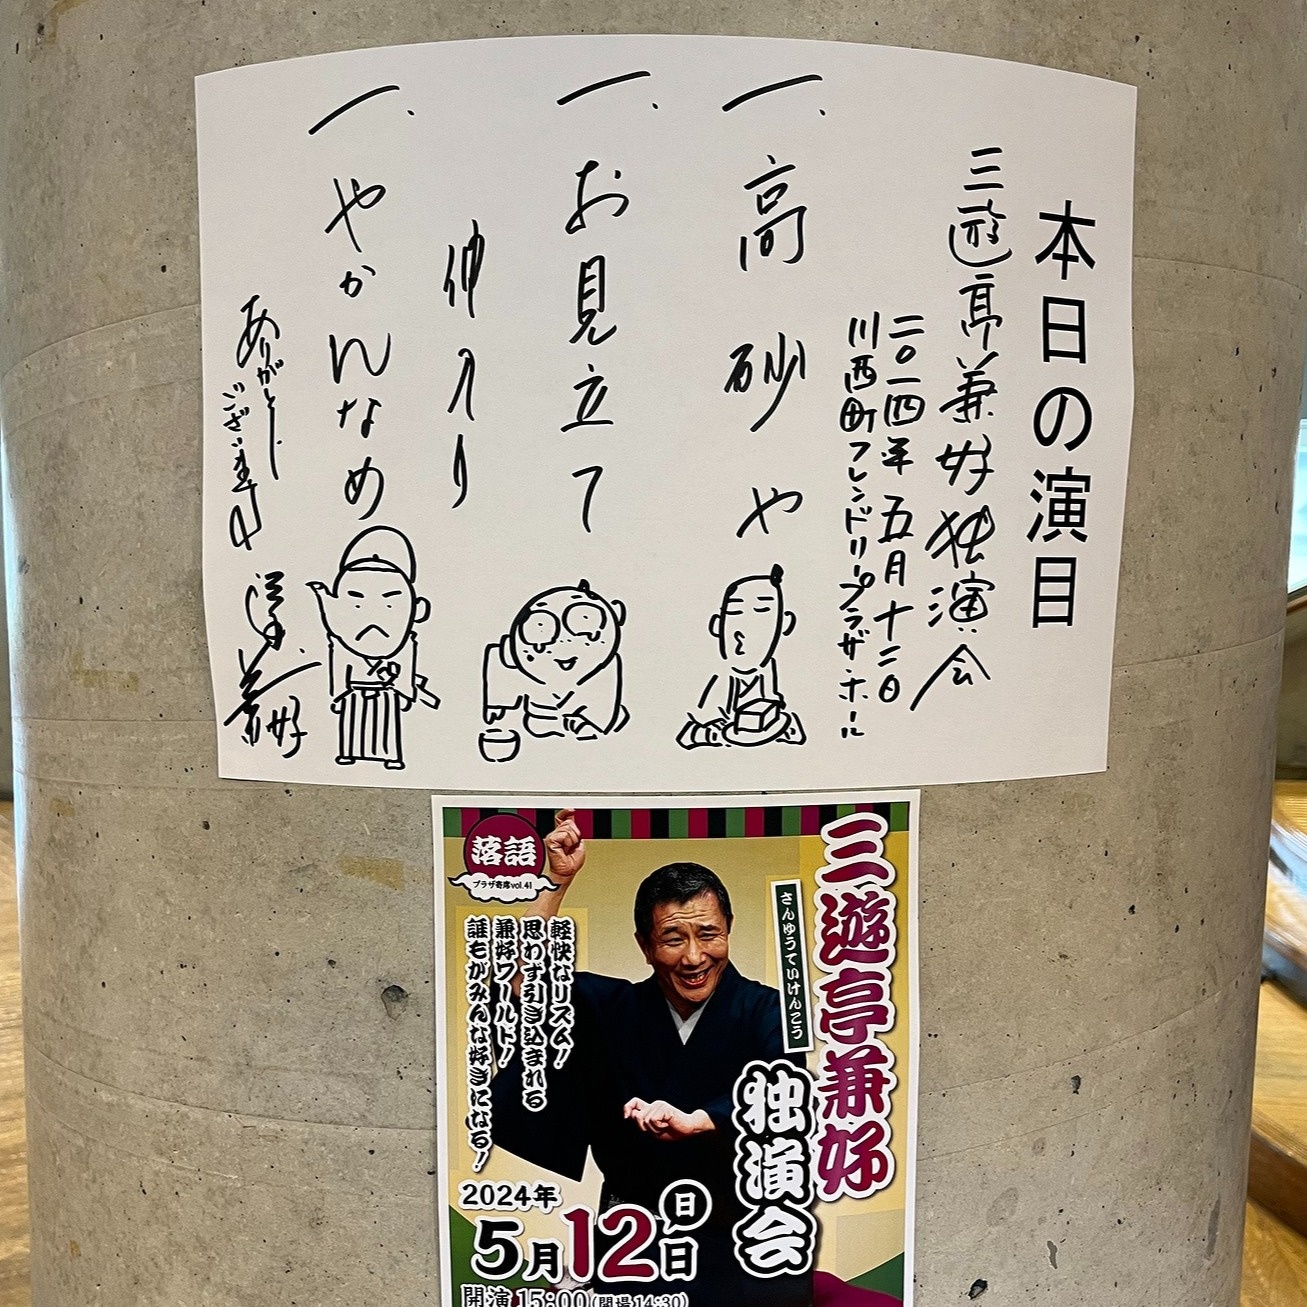 本日の演目
三遊亭兼好独演会
二〇二四年 五月十二日
川西町フレンドリープラザ・ホール
一、高砂や
一、お見立て
仲入り
一、やかんなめ
ありがとう
ございます
兼好
落語
プラザ寄席vol.41
三遊亭兼好
さんゆうていけんこう
独演会
軽快なリズム!
思わず引き込まれる
兼好ワールド!
誰もがみんな好きになる!
2024年
5月12日
日
開演15:00(開場14:30)